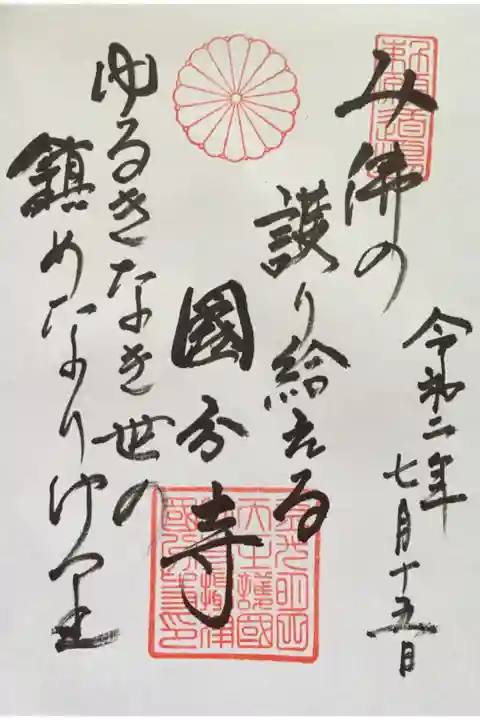 勅願道場
令和二年
七月十五日
み佛の
護り給える
國分寺
ゆるきなき世の
鎮めなりけ里